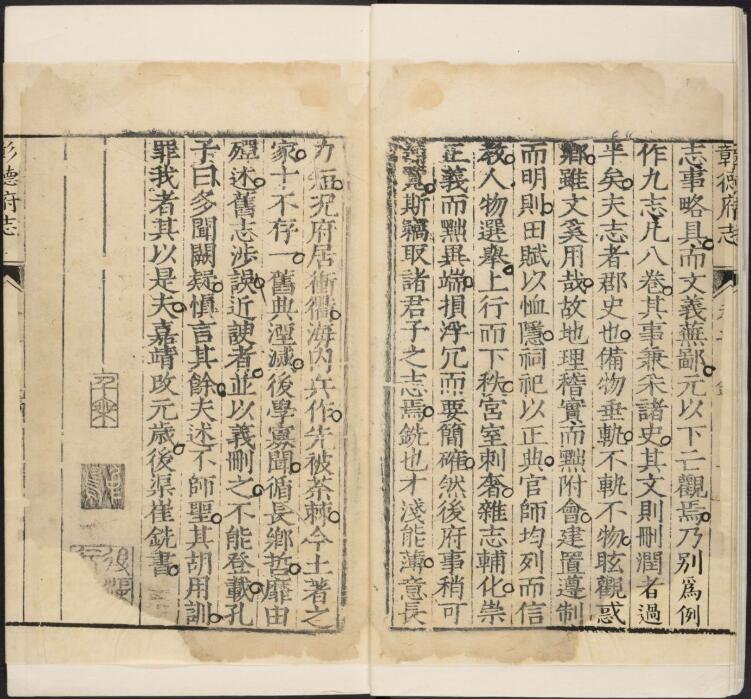 彰德府志
志事略具而文義蕪鄙元以下亡觀焉乃別爲例
作九志凡八卷其事兼采諸史其文則刪潤者過
半矣夫志者郡史也備物垂軌不軌不物眩觀惑
鄉雖文奚用哉故地理稽實而黜附會建置遵制
而明則田賦以恤隱祠祀以正典官師均列而信
教人物選舉上行而下秩宮室刺奢雜志輔化崇
正義而黜異端損浮冗而要簡確然後府事稍可
覽斯竊取諸君子之志焉銑也才淺能薄意長
力短況府居衝衢海內兵作先被荼棘今土著之
家十不存一舊典湮滅後學寡聞循長鄉哲靡由
殫述舊志涉誤近諛者並以義刪之不能登載孔
子曰多聞闕疑慎言其餘夫述不師聖其胡用訓
罪我者其以是夫嘉靖改元歲後渠崔銑書
彰德府志